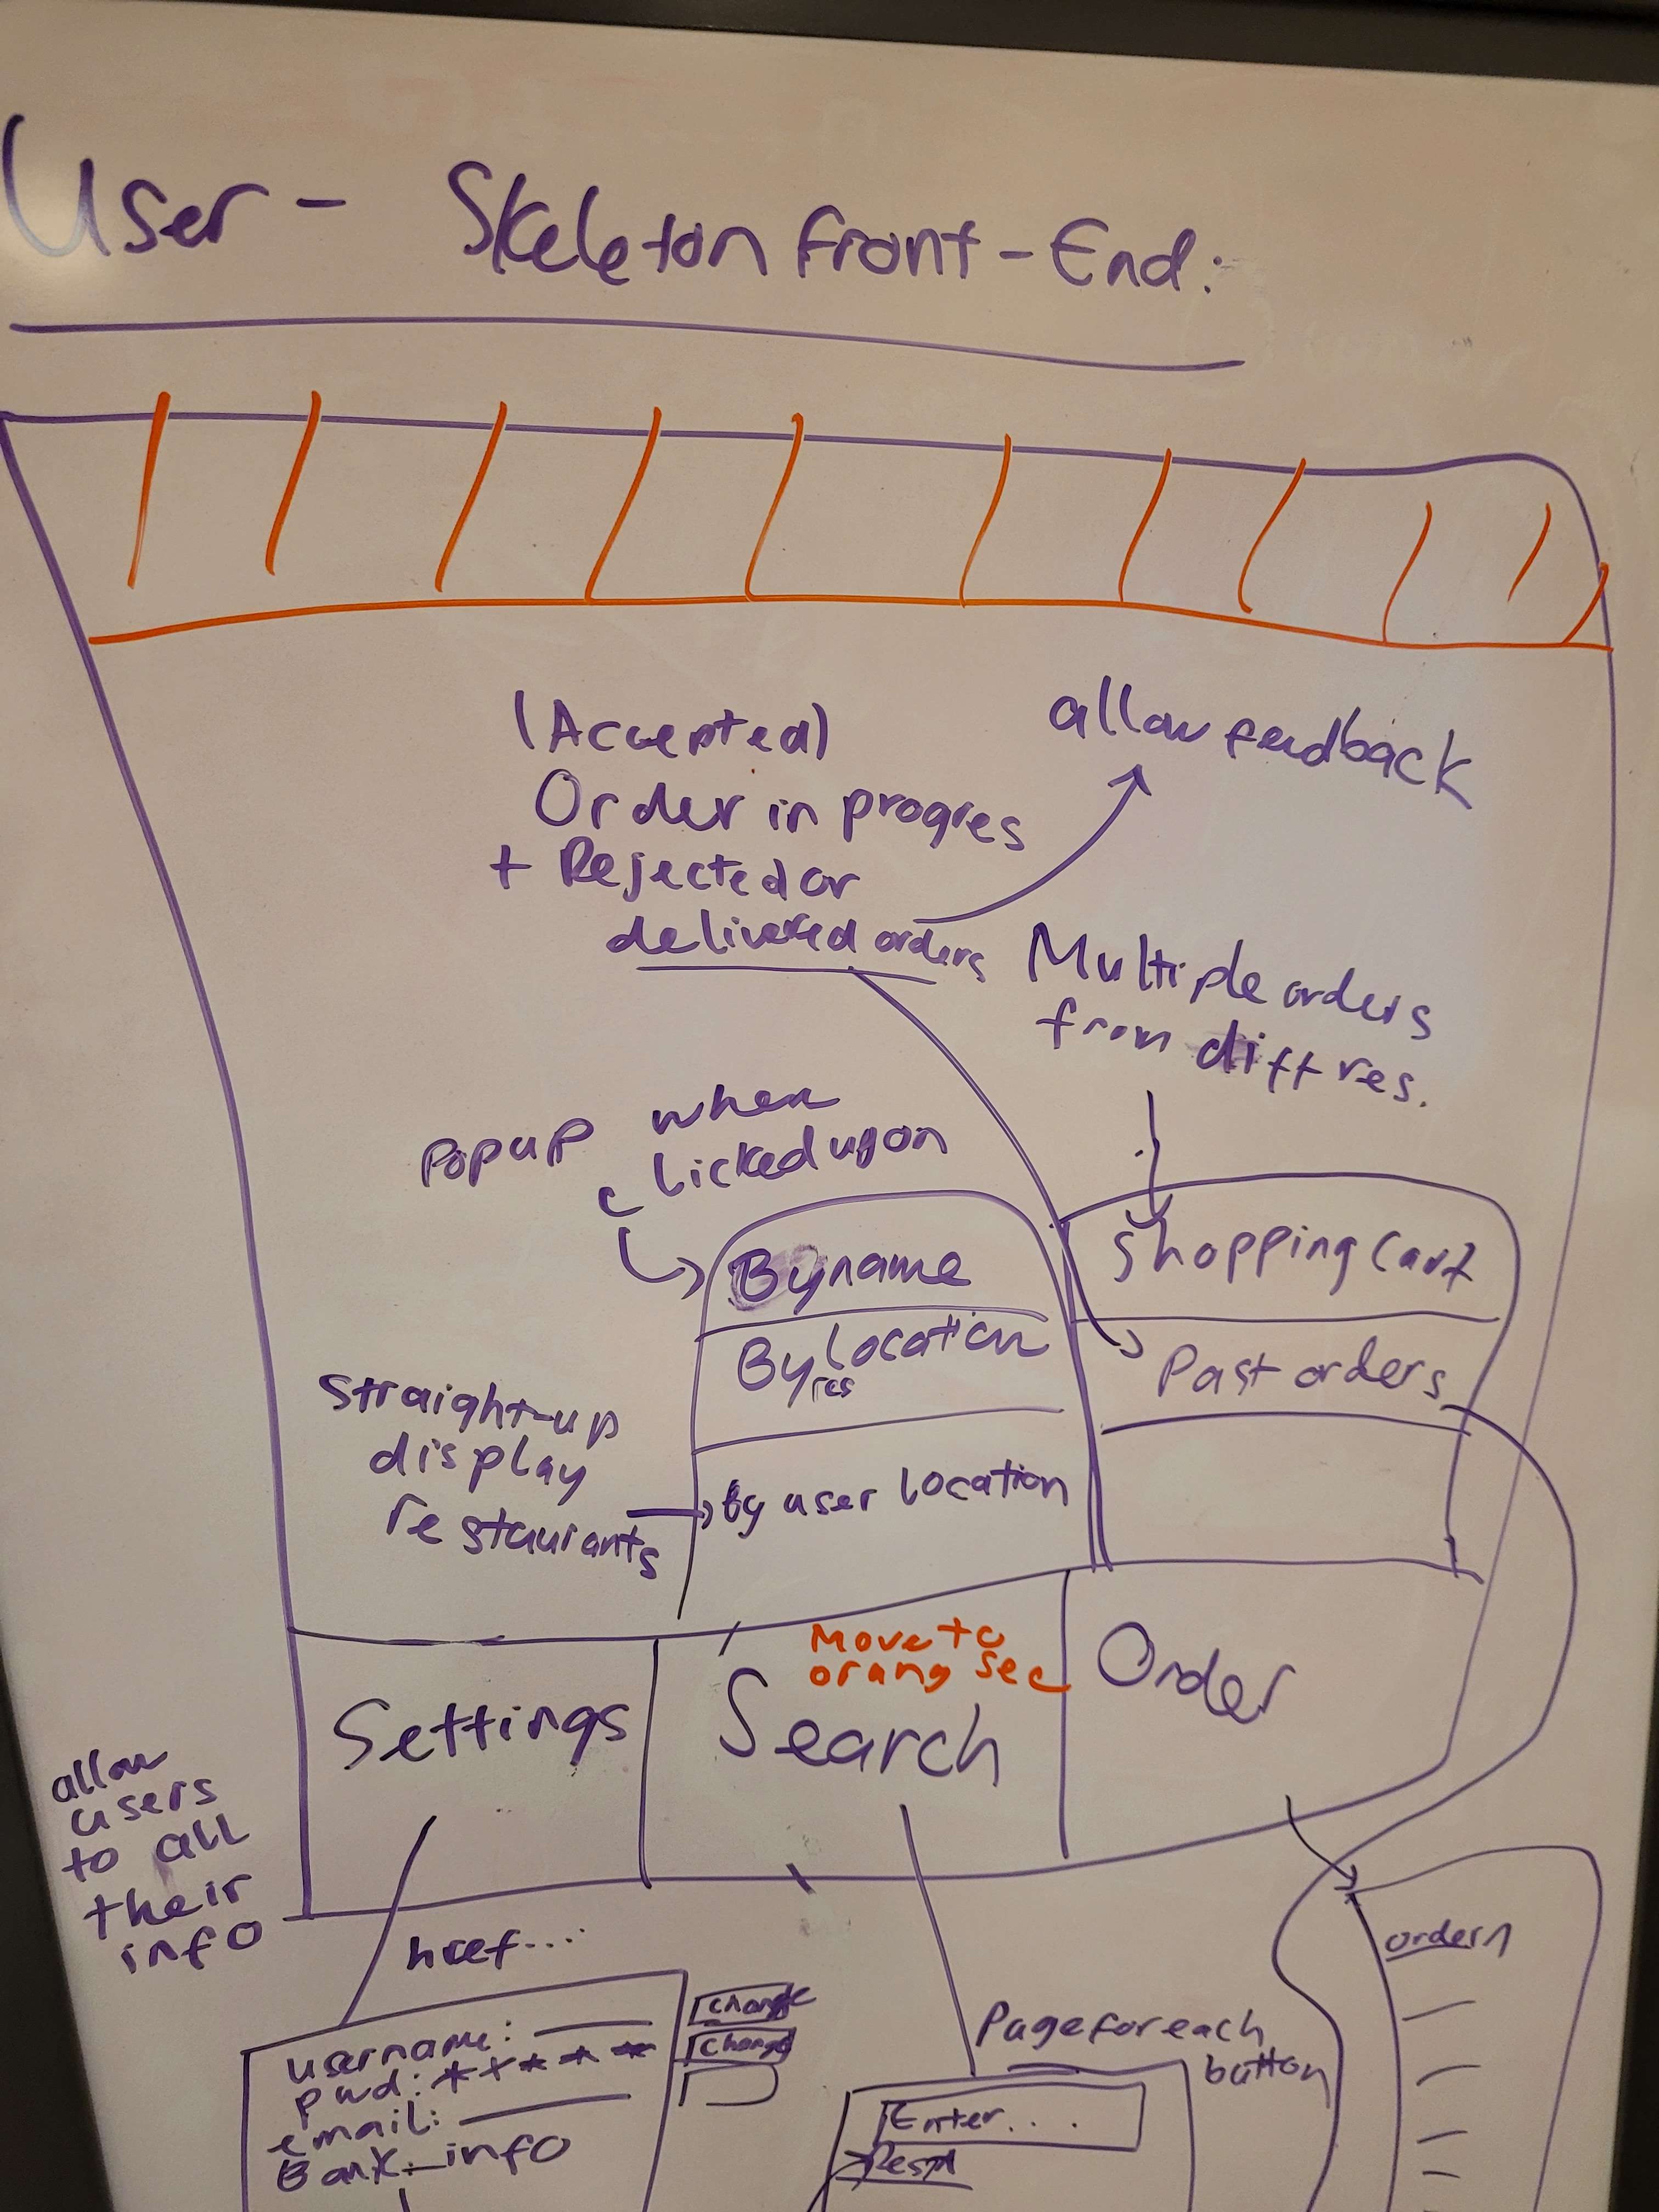 User - Skeleton front-End:
(Accepted)
Order in progres
+ Rejected or
delivered orders
allow feedback
Multiple orders
from diff res.
Popup when
clicked upon
By name
By Location
res
by user location
Straight-up
display
restaurants
Shopping Cart
Past orders
Settings
Move to
orang sec
Search
Order
allow
users
to all
their
info
href....
username:
pwd: *****
email:
Bank_info
change
change
Page for each
button
Enter...
order 1